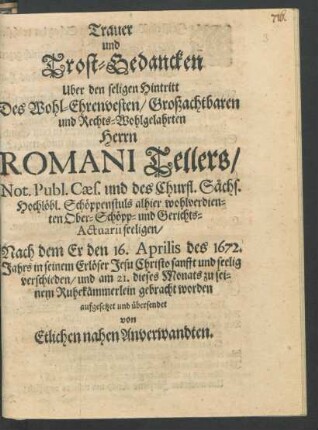 Trauer
und
Trost-Gedancken
Uber den seligen Hintritt
Des Wohl-Ehrenvesten/ Großachtbaren
und Rechts-Wohlgelahrten
Herrn
ROMANI Tellers/
Not. Publ. Cæs. und des Churfl. Sächs.
Hochlöbl. Schöppenstuls alhier wohlverdien-
ten Ober-Schöpp- und Gerichts-
Actuarii seeligen/
Nach dem Er den 16. Aprilis des 1672.
Jahrs in seinem Erlöser Jesu Christo sanfft und seelig
verschieden/ und am 21. dieses Monats zu sei-
nem Ruhekämmerlein gebracht worden
aufgesetzet und übersendet
von
Etlichen nahen Anverwandten.